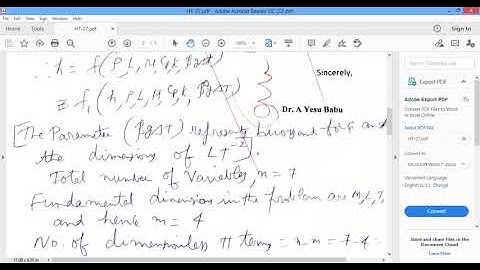 HT-27.pdf - Adobe Acrobat Reader DC (32-bit)
File Edit View Sign Window Help
Home Tools HT-27.pdf × Sign In
∴ h = f(ρ, L, M, Cp, K, βgΔT)
≡ f₁(h, ρ, L, M, Cp, K, βgΔT)
Sincerely,
Dr. A Yesu Babu
[The Parameter (βgΔT) represents buoyant force and
the dimensions of LT⁻²]
Total number of variables, n = 7
Fundamental dimensions in the problem are M, L, T,
and hence m = 4
No. of dimensionless π terms = n-m = 7-4 =
Export PDF
Adobe Export PDF
Convert PDF Files to Word
or Excel Online
Select PDF File
HT-27.pdf
Convert to
Microsoft Word (*.docx)
Document Language:
English (U.S.) Change
Convert
Store and share files in the
Document Cloud
Learn More